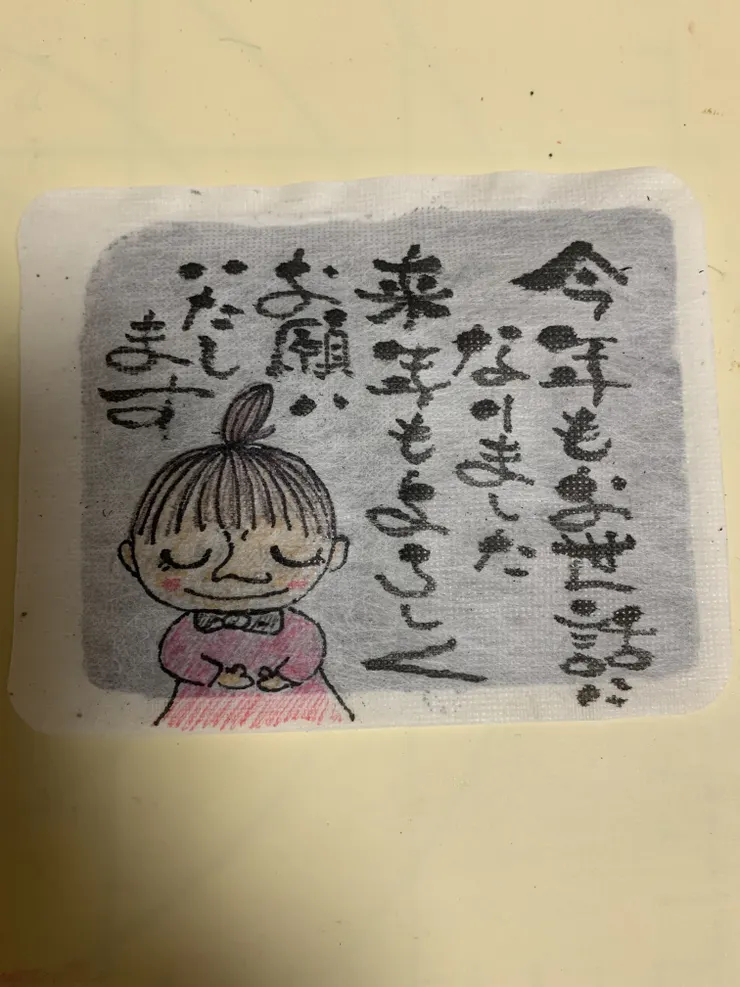 今年もお世話に
なりました
来年もよろしく
お願い
いたし
ます